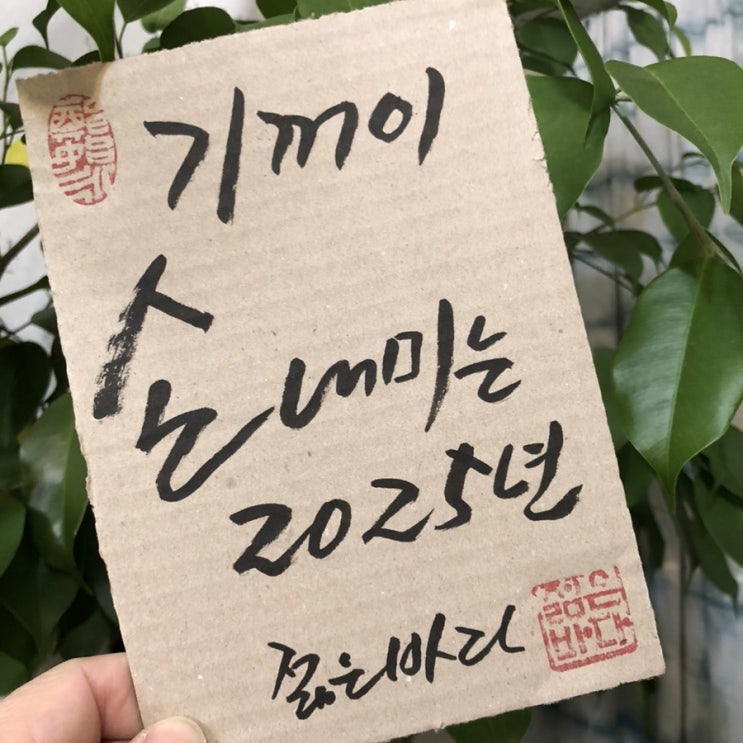 기꺼이
손 내미는
2025년
젊은바다
젊은
바다